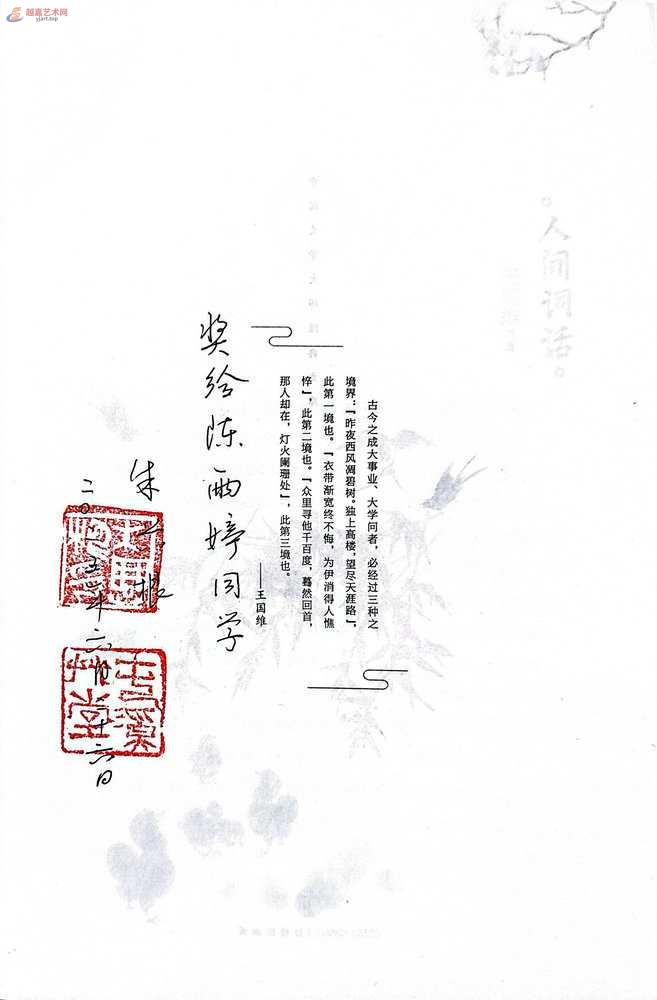 越嘉艺术网
yjart.top
人间词话。
古今之成大事业、大学问者，必经过三种之
境界：『昨夜西风凋碧树。独上高楼，望尽天涯路』，
此第一境也。『衣带渐宽终不悔，为伊消得人憔
悴』，此第二境也。『众里寻他千百度，蓦然回首，
那人却在，灯火阑珊处』，此第三境也。
——王国维
奖给陈雨婷同学
朱
二〇一五年六月二十六日